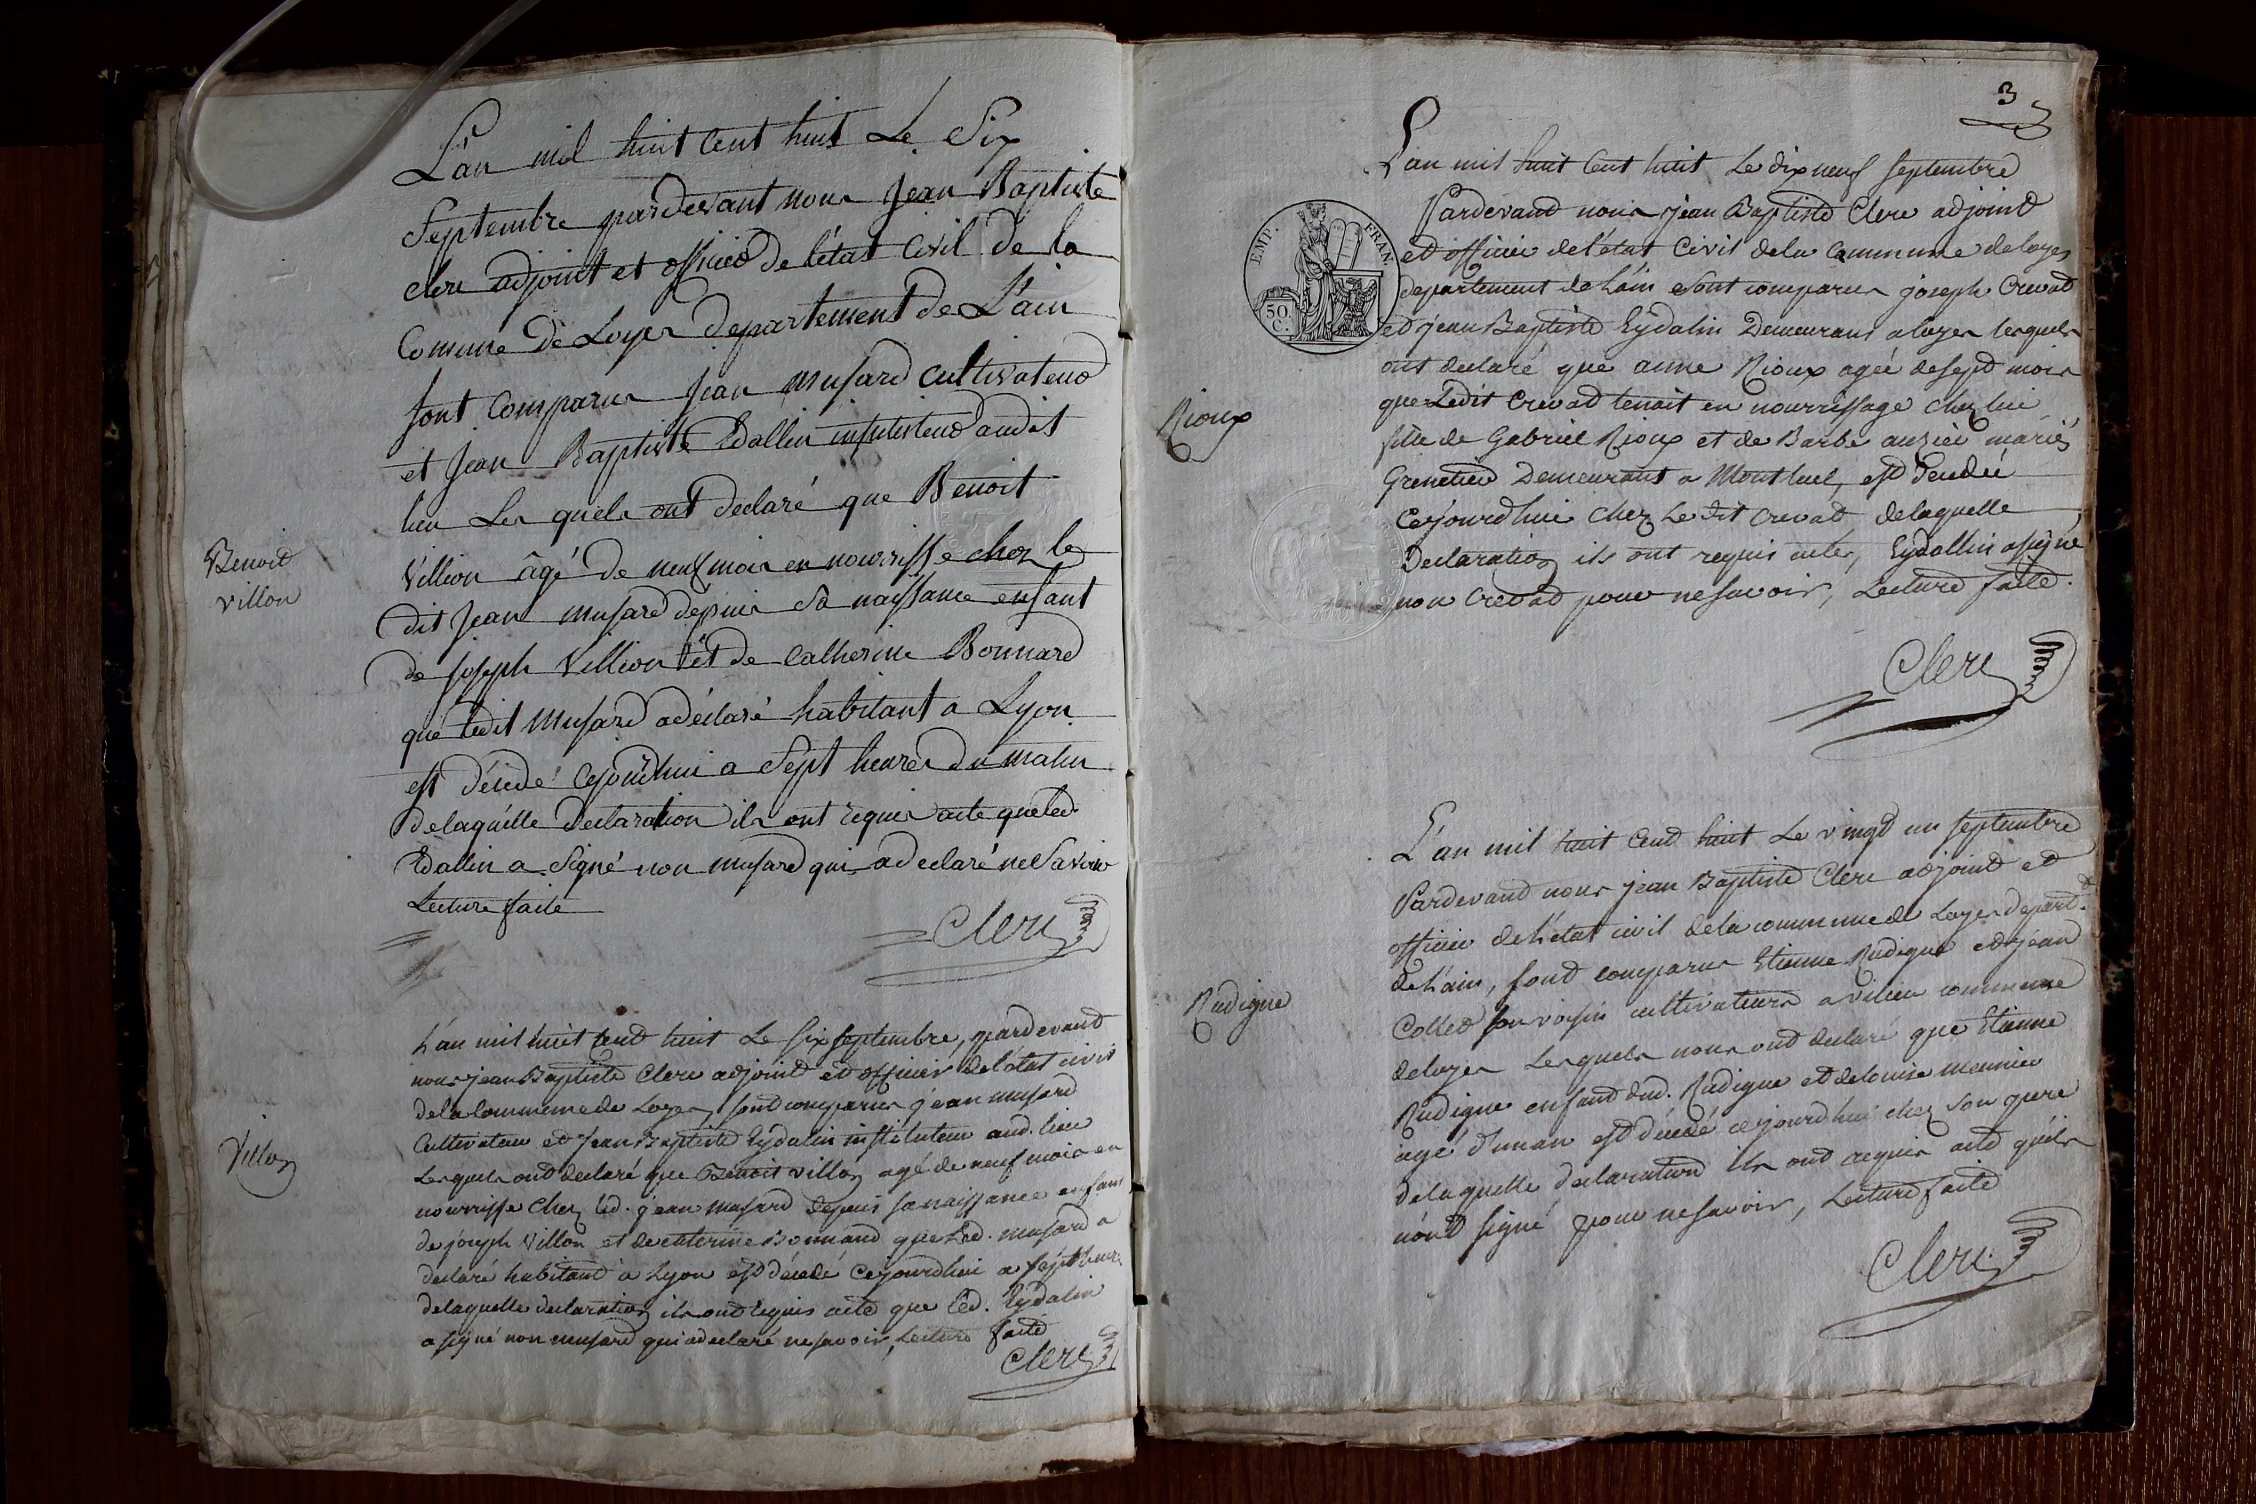 L'an mil huit Cent huit Le Six
Septembre pardevant nous Jean Baptiste
clerc adjoint et officier de l'état Civil de la
Comune de Loyes departement de L'ain
sont Comparus Jean musard cultivateur
et Jean Baptiste Edallin institeteur audit
lieu Les quels ont declaré que Benoit
Villion âgé de neuf mois en nourrisse chez le
dit Jean musard depuis Sa naissance enfant
de Joseph Villion et de Catherine Bonnard
que ledit musard a déclaré habitant a Lyon
est décédé Cejourdhui a Sept heures du matin
delaquelle declaration ils ont requis acte que led.
Edallin a Signé non musard qui a declaré ne Savoir
Lecture faite
Clerc
Benoit
villon
L'an mil huit cent huit Le six septembre, pardevant
nous jean Baptiste Clerc adjoint et officier de l'état civil
de la Commune de Loyes, sont comparus jean musard
Cultivateur et Jean Baptiste Eydalin instituteur aud. lieu
Lesquels ont declaré que Benoit villon agé de neuf mois en
nourrisse chez led. jean musard depuis sa naissance enfant
de joseph Villon et de caterine Bonnand que Led. musard a
declaré habitant a Lyon est décédé Cejourdhui a sept heur.
delaquelle declaration ils ont requis acte que Led. Eydalin
a signé non musard qui a declaré ne savoir, Lecture faite
Clerc
Villon
3
L'an mil huit Cent huit Le dix neuf septembre
Pardevant nous jean Baptiste Clerc adjoint
et officier de l'état Civil de la Commune de loyes
departement de L'ain sont comparus joseph Crevat
et jean Baptiste Eydalin Demeurans a loyes lesquels
ont declaré que anne Rioux agée de sept mois
que Ledit Crevat tenoit en nourrissage chez lui
fille de Gabriel Rioux et de Barbe mariés
Demeurants a Montluel, est décédée
Cejourdhui chez Le dit Crevat, delaquelle
Declaration ils ont requis acte, Eydallin a signé
non Crevat pour ne savoir, Lecture faite.
Clerc
EMP. FRAN.
50.
C.
Rioux
L'an mil huit Cent huit Le vingt un septembre
Pardevant nous jean Baptiste Clerc adjoint et
officier de l'état civil de la commune de Loyes depart.t
de L'ain, sont comparus Etienne Rudigue et jean
Collet son voisin cultivateurs a vilieu commune
de loyes Lesquels nous ont declaré que Etienne
Rudigue enfant dud. Rudigue et de louise meunier
agé d'un an est décédé cejourdhui chez son pere
delaquelle declaration ils ont requis acte qu'ils
n'ont signé pour ne savoir, Lecture faite
Clerc
Rudigue